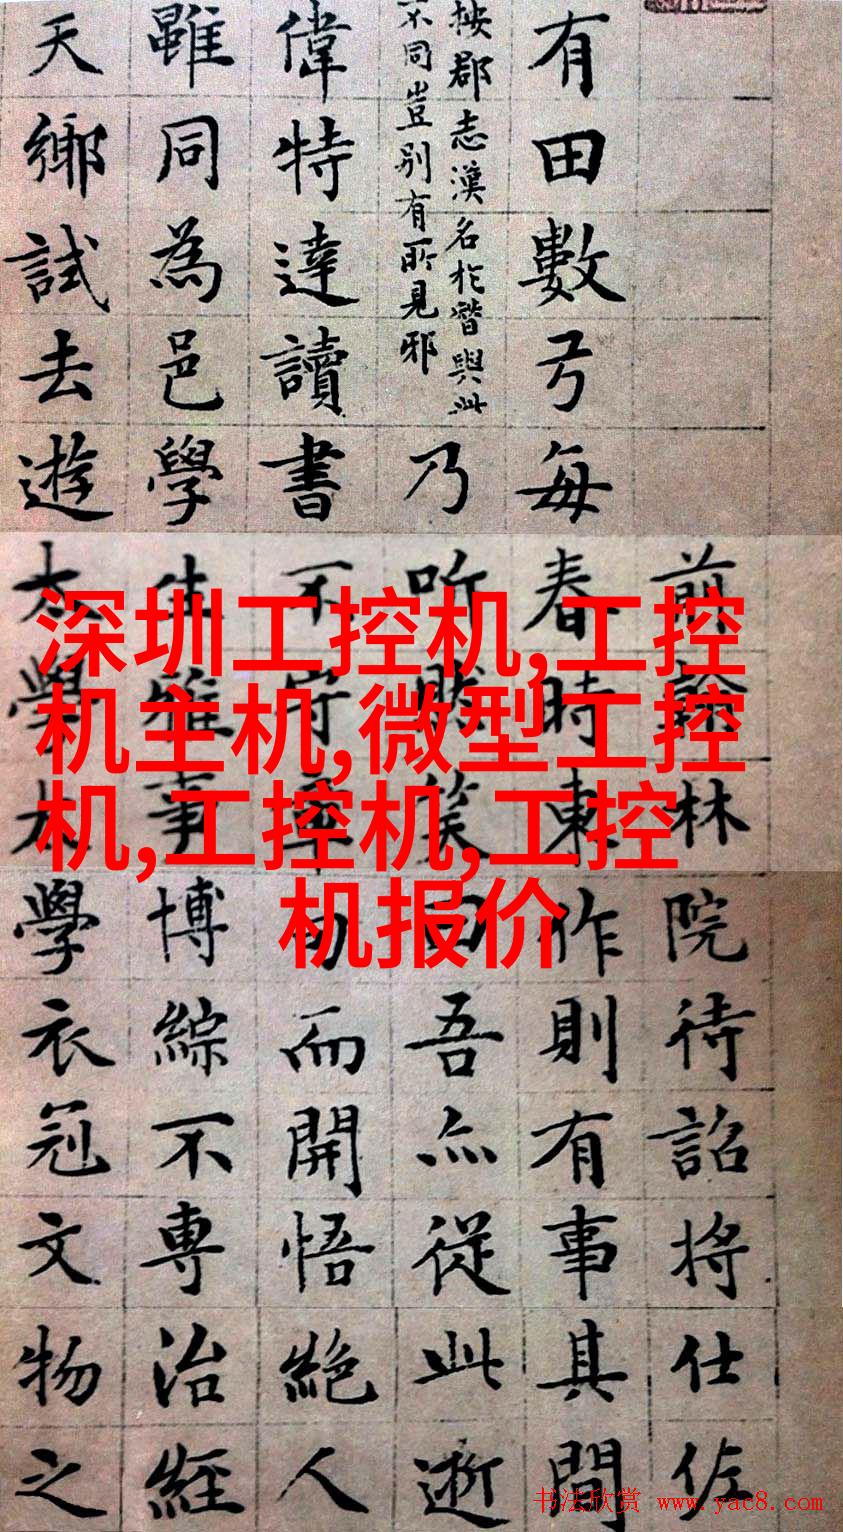 深圳工控机,工控
机主机,微型工控
机,工控机,工控
机报价
前翰林院待詔将仕佐
有田數弓每春時東作則有事其間
按郡志漢名於晉與此
不同豈别有所見邪
乃听然笑曰吾亦從此逝
偉特達讀書不守章句而開悟絶人
雖同為邑學生雅事博綜不專治經
天鄉試去遊太學太學衣冠文物之
书法欣赏 www.yac8.com